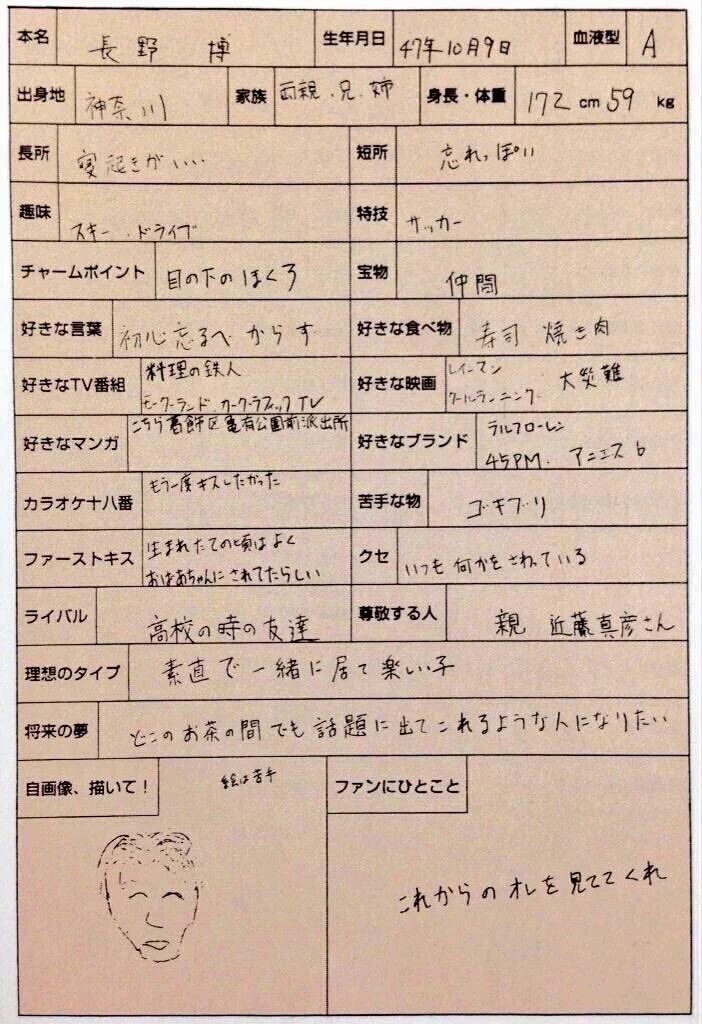 本名 長野 博 生年月日 47年10月9日 血液型 A
出身地 神奈川 家族 両親、兄、姉 身長・体重 172 cm 59 kg
長所 寝起きがいい 短所 忘れっぽい
趣味 スキー・ドライブ 特技 サッカー
チャームポイント 目の下のほくろ 宝物 仲間
好きな言葉 初心忘るべからず 好きな食べ物 寿司 焼き肉
好きなTV番組 料理の鉄人
モーターランド カーグラフィックTV
好きな映画 レインマン
クールランニング 大災難
好きなマンガ こちら葛飾区亀有公園前派出所
好きなブランド ラルフローレン
45PM. アニエスb
カラオケ十八番 もう一度キスしたかった 苦手な物 ゴキブリ
ファーストキス 生まれたての頃はよく
おばあちゃんにされてたらしい
クセ いつも何かをさわっている
ライバル 高校の時の友達 尊敬する人 親 近藤真彦さん
理想のタイプ 素直で一緒に居て楽しい子
将来の夢 どこのお茶の間でも話題に出てこれるような人になりたい
自画像、描いて! 絵は苦手
ファンにひとこと
これからのオレを見ててくれ